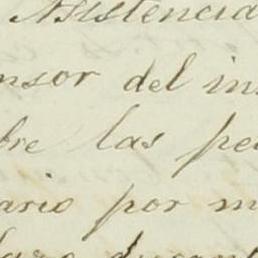 Asistencia
nsor del in
bre las pe
ario por m